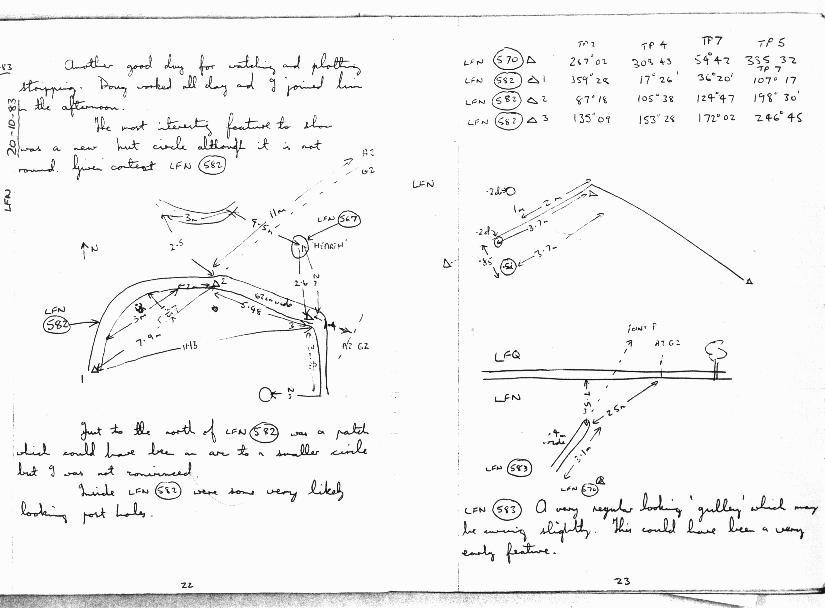 20-10-83
LFN
Another good day for watching and plotting
stripping. Doug worked all day and I joined him
in the afternoon.
The most interesting feature to show
was a new hut circle although it is not
round. Given context LFN 582
A2
G2
11m
3m
9.5m
LFN 567
N
2.5
HEARTH
2
2.6
62cm wide
LFN
582
5.98
3m
7.9m
11.13
3
4
A2 G2
1
Just to the north of LFN 582 was a patch
which could have been an arc to a smaller circle
but I was not convinced.
Inside LFN 582 were some very likely
looking post holes.
22
TP 4 TP 7 TP 5
LFN 570 △ 267°02 303 43 54°42 335 32
TP 7
LFN 582 △ 1 359°28 17°26' 36°20' 107° 17
LFN 582 △ 2 87°18 105°38 124°47 198° 30'
LFN 582 △ 3 135°09 153°28 172°02 246°45
LFN
1m 2m
3.7m
.85
3.7m
JOINT F
A2 G2
LFQ
LFN
7.5m
2.5m
.4m
wide
3.1m
LFN 583
LFN 570
LFN 583 A very regular looking 'gulley' which may
be curving slightly. This could have been a very
early feature.
23